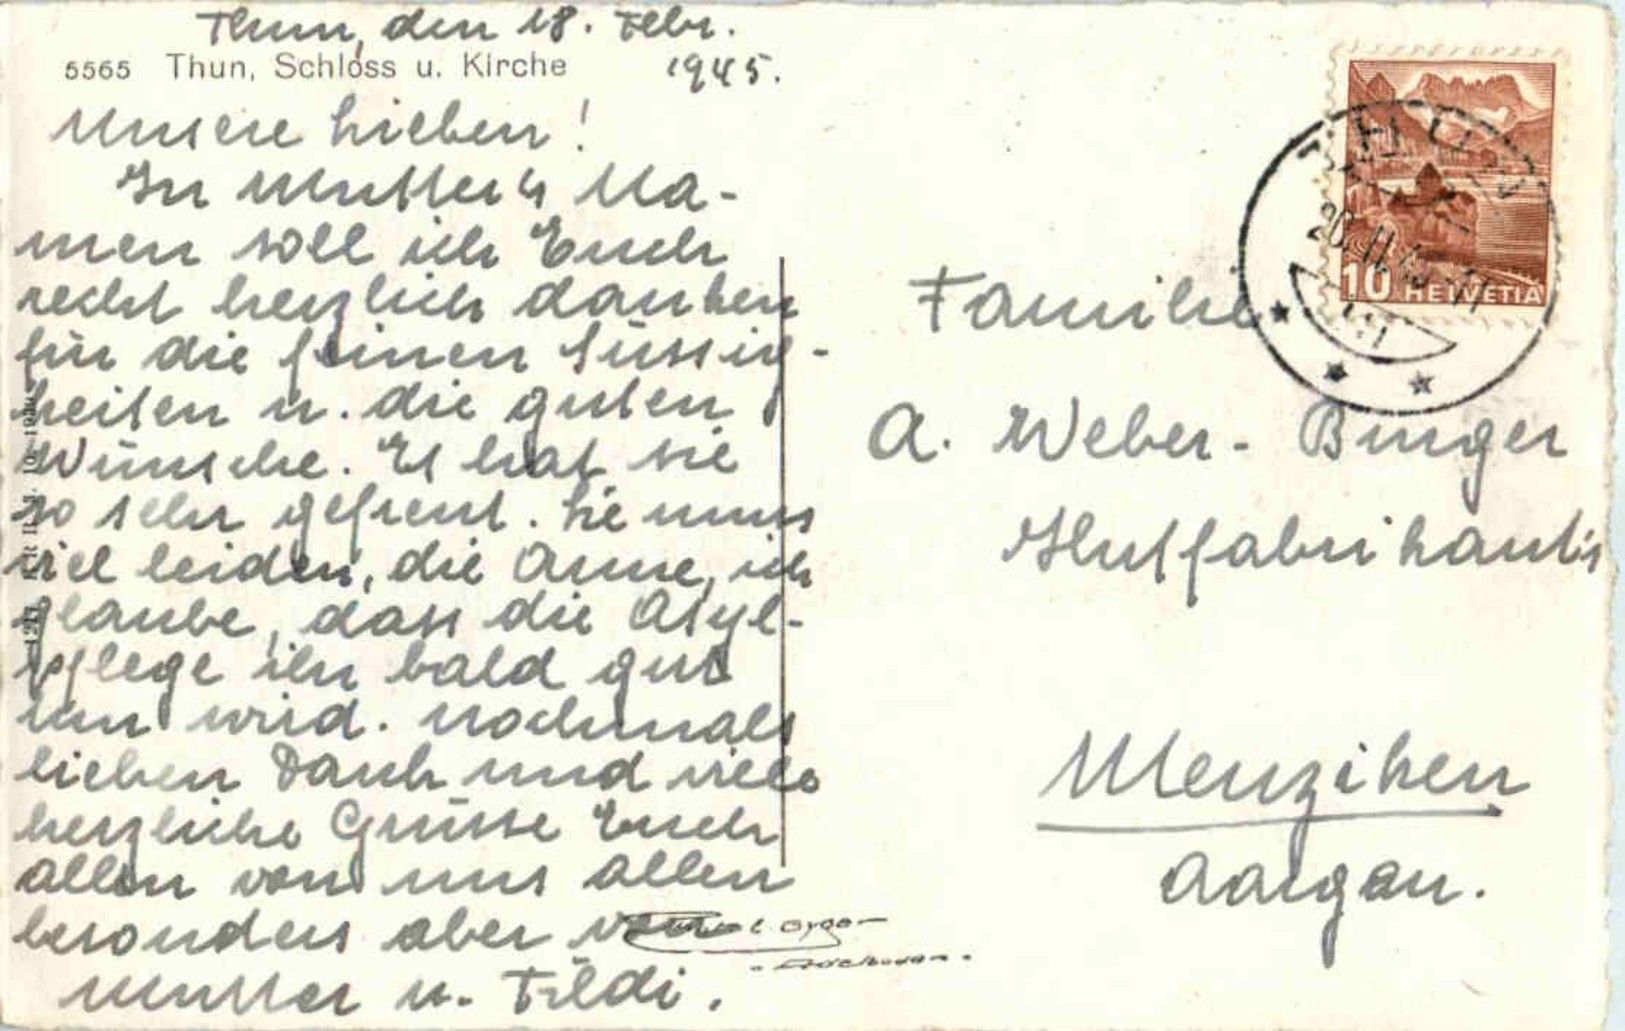 Thun, den 18. Febr.
1945.
5565 Thun, Schloss u. Kirche
Unsere Lieben!
In Mutter's Na-
men soll ich Euch
recht herzlich danken
für die feinen Süssig-
keiten u. die guten
Wünsche. Es hat sie
so sehr gefreut. Sie muss
viel leiden, die Arme, ich
glaube, dass die Asyl-
pflege ihr bald gut
tun wird. Nochmals
lieben Dank und viele
herzliche Grüsse Euch
allen von uns allen
besonders aber von
Mutter u. Tildi.
Familie
A. Weber-Burger
Hutfabrikant's
Menziken
Aargau.
THUN
20. II. 45
10 HELVETIA
Gyger
Adelboden